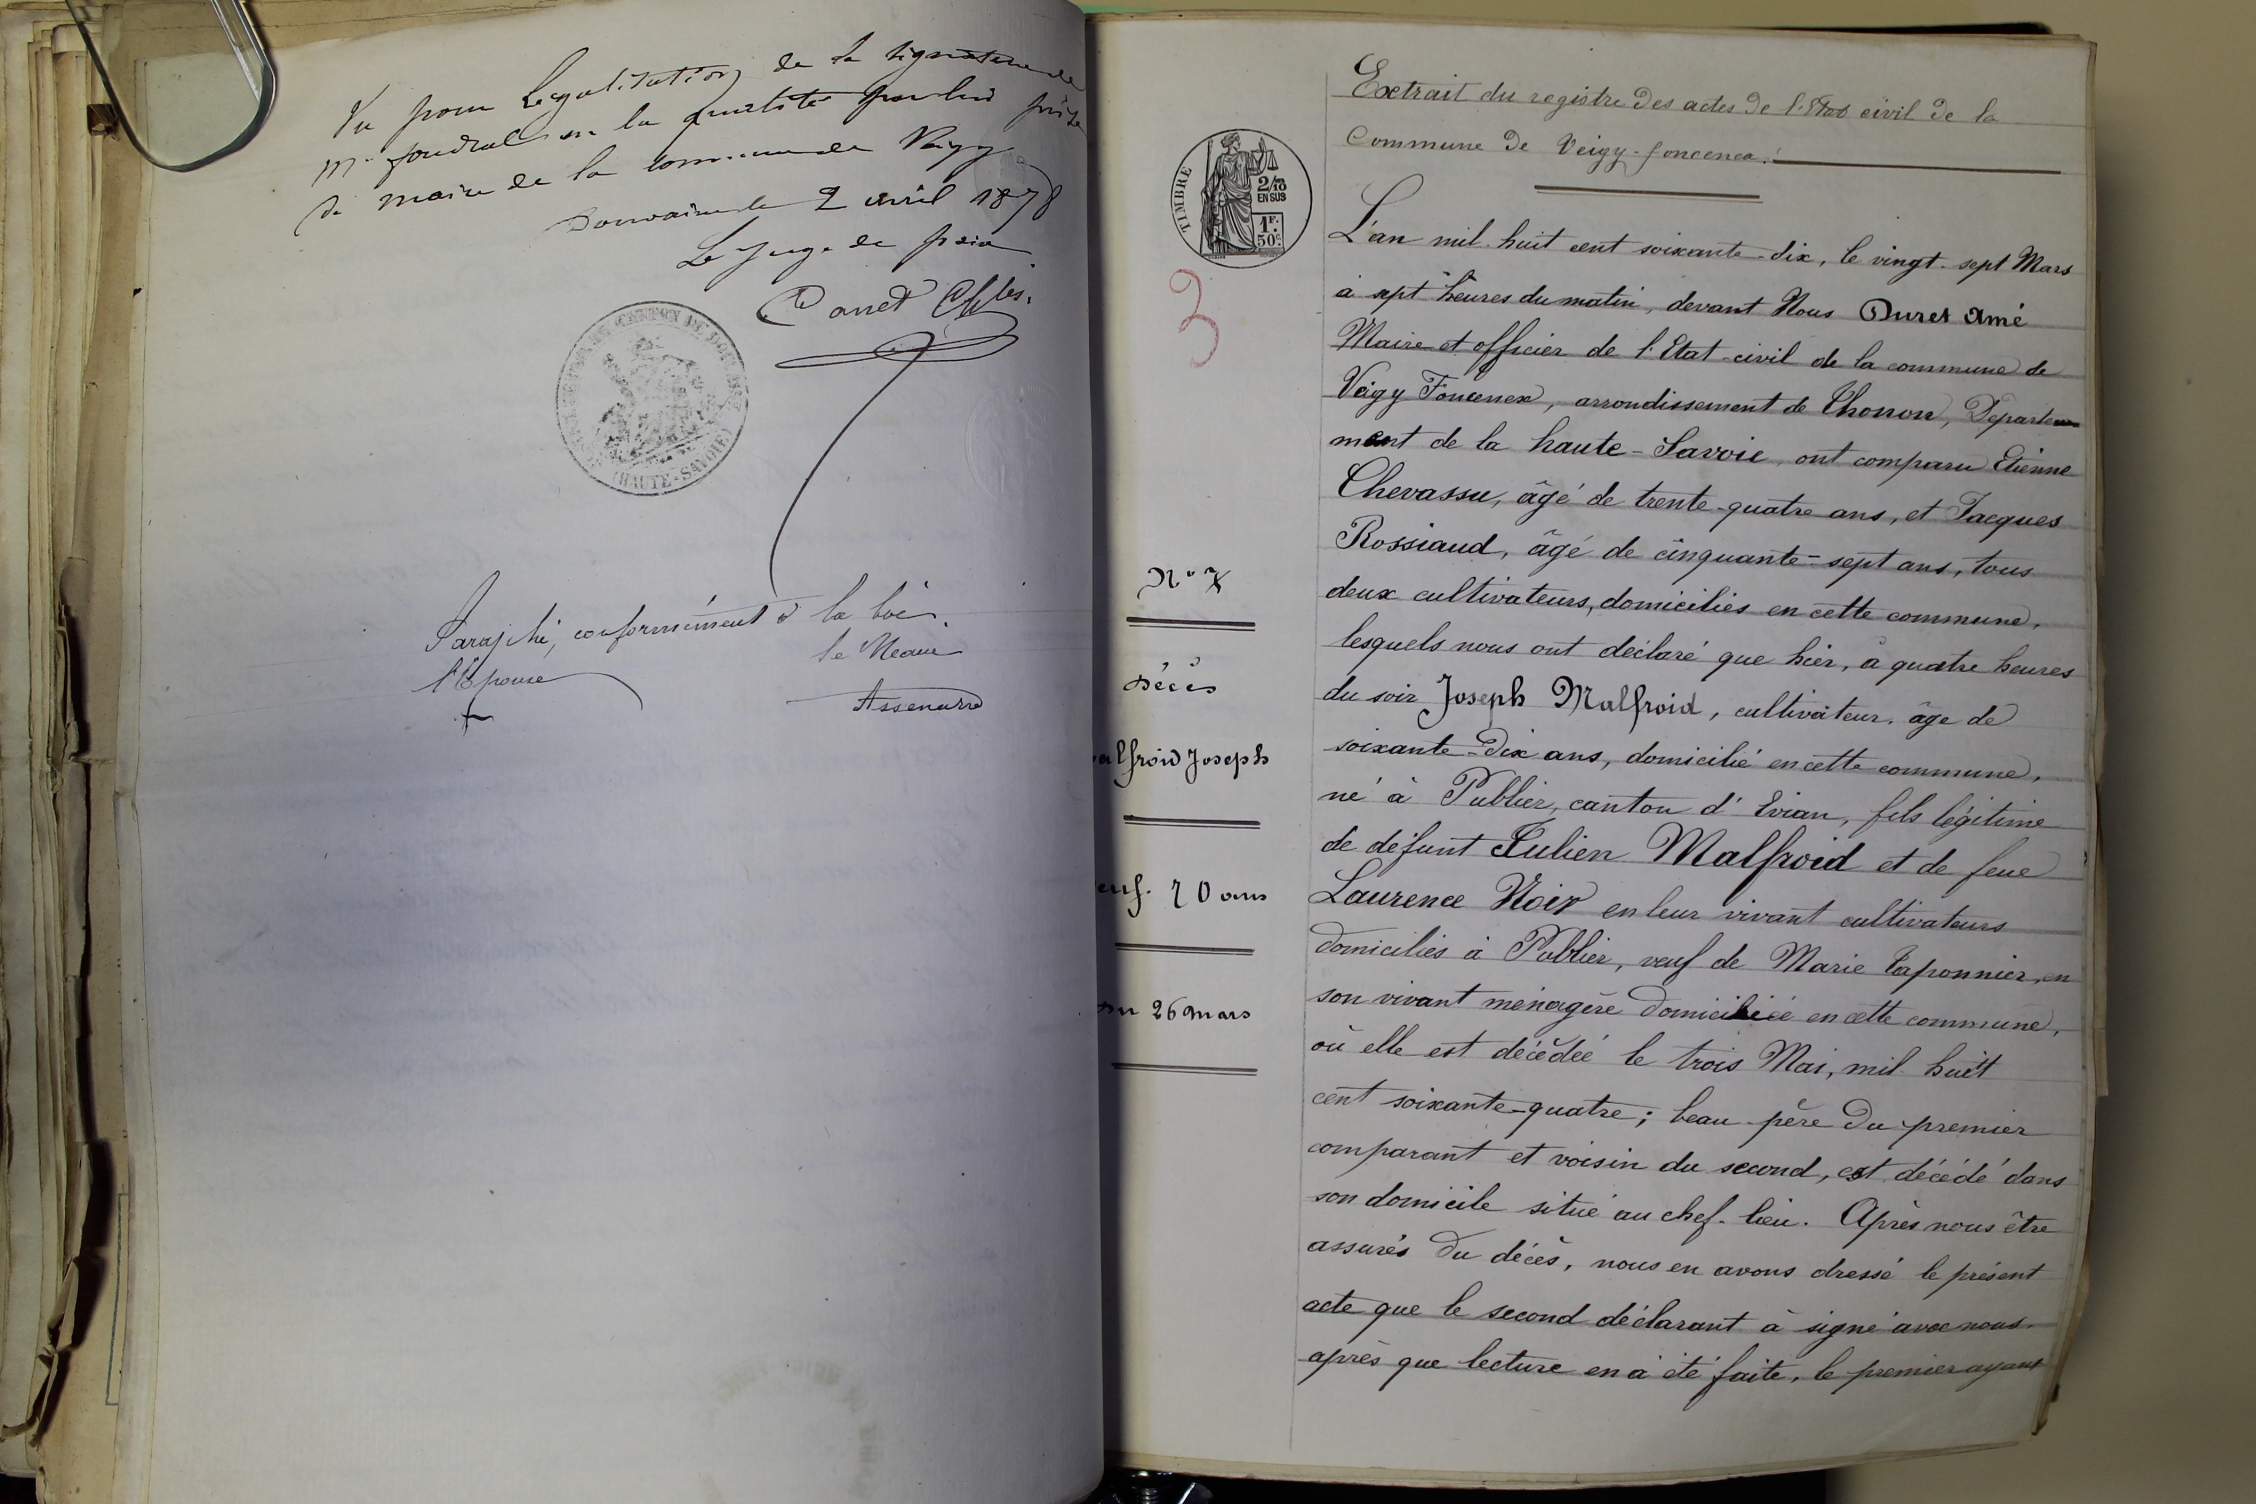 Vu pour Légalisation de la signature de
Mr foudral en la qualité par lui prise
de maire de la commune de Veigy
Douvaine le 2 avril 1878
Le juge de paix
Canet
(HAUTE-SAVOIE)
Paraphé, conformément à la loi.
l'Epouse
le Maire
Extrait du registre des actes de l'Etat civil de la
Commune de Veigy-foncenex.
TIMBRE
2/10
EN SUS
1F.
50c.
3
L'an mil huit cent soixante-dix, le vingt-sept Mars
à sept heures du matin, devant Nous Duret Amé
Maire et officier de l'Etat-civil de la commune de
Veigy Foncenex, arrondissement de Thonon, Departe
ment de la haute-Savoie, ont comparu Etienne
Chevassu, âgé de trente-quatre ans, et Jacques
Rossiaud, âgé de cinquante-sept ans, tous
deux cultivateurs, domiciliés en cette commune,
lesquels nous ont déclaré que hier, à quatre heures
du soir Joseph Malfroid, cultivateur, âgé de
soixante-Dix ans, domicilié en cette commune,
né à Publier, canton d'Evian, fils légitime
de défunt Julien Malfroid et de feue
Laurence Noir en leur vivant cultivateurs
domiciliés à Publier, veuf de Marie Taponnier, en
son vivant ménagère domiciliée en cette commune,
où elle est décédée le trois Mai, mil huit
cent soixante-quatre; beau-père du premier
comparant et voisin du second, est décédé dans
son domicile situé au chef-lieu. Après nous être
assurés du décès, nous en avons dressé le présent
acte que le second déclarant à signé avec nous
après que lecture en à été faite, le premier ayant
N° 7
Décès
alfroid Joseph
euf. 70 ans
Du 26 mars